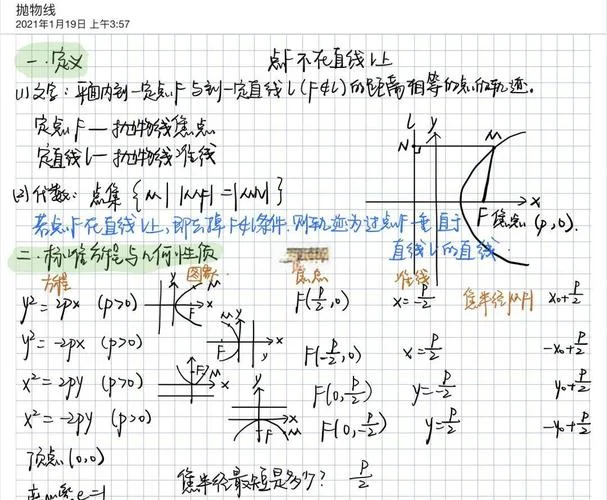 抛物线
2021年1月19日 上午3:57
一.定义
点F不在直线l上
(1)文字: 平面内到一定点F与到一定直线l(F∉l)的距离相等的点的轨迹.
定点F—抛物线焦点
定直线l—抛物线准线
l y
N M
x
F 焦点(p,0).
(2)代数: 点集{M||MF|=|MN|}
若点F在直线l上,即去掉F∉l条件.则轨迹为过点F垂直于
直线l的直线.
二.标准方程与几何性质
方程 图象 焦点 准线 焦半径|MF| x₀+p/2
y²=2px (p>0) y F x F(p/2,0) x=-p/2
y²=-2px (p>0) M F x y F(-p/2,0) x=p/2 -x₀+p/2
x²=2py (p>0) F M x F(0,p/2) y=-p/2 y₀+p/2
x²=-2py (p>0) y x F M F(0,-p/2) y=p/2 -y₀+p/2
顶点(0,0)
离心率e=1
焦半径最短是多少? p/2